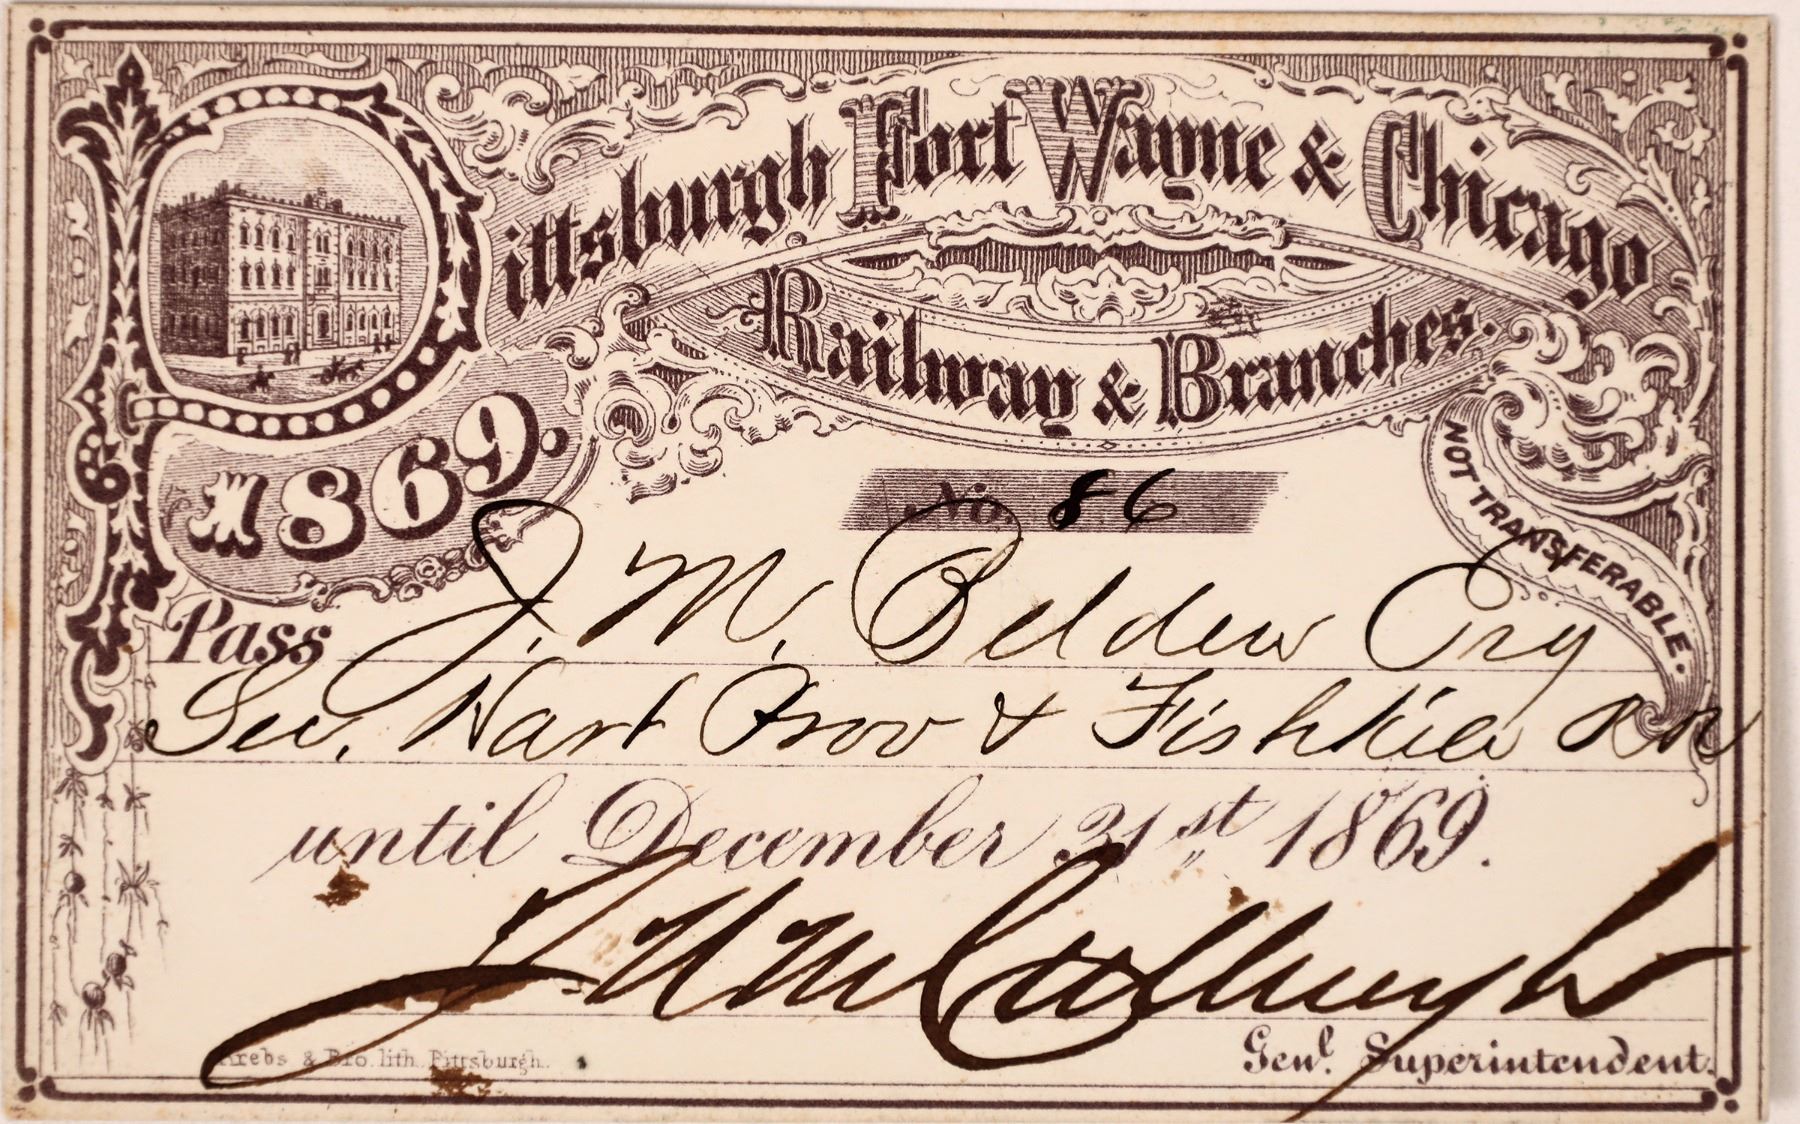 Pittsburgh Fort Wayne & Chicago
Railway & Branches.
1869.
No. 86
NOT TRANSFERABLE.
Pass J. M. Belden Try
Sec. Hart Prov & Fishkill RR
until December 31st 1869.
J N McCullough
Genl. Superintendent.
Krebs & Bro. lith. Pittsburgh.